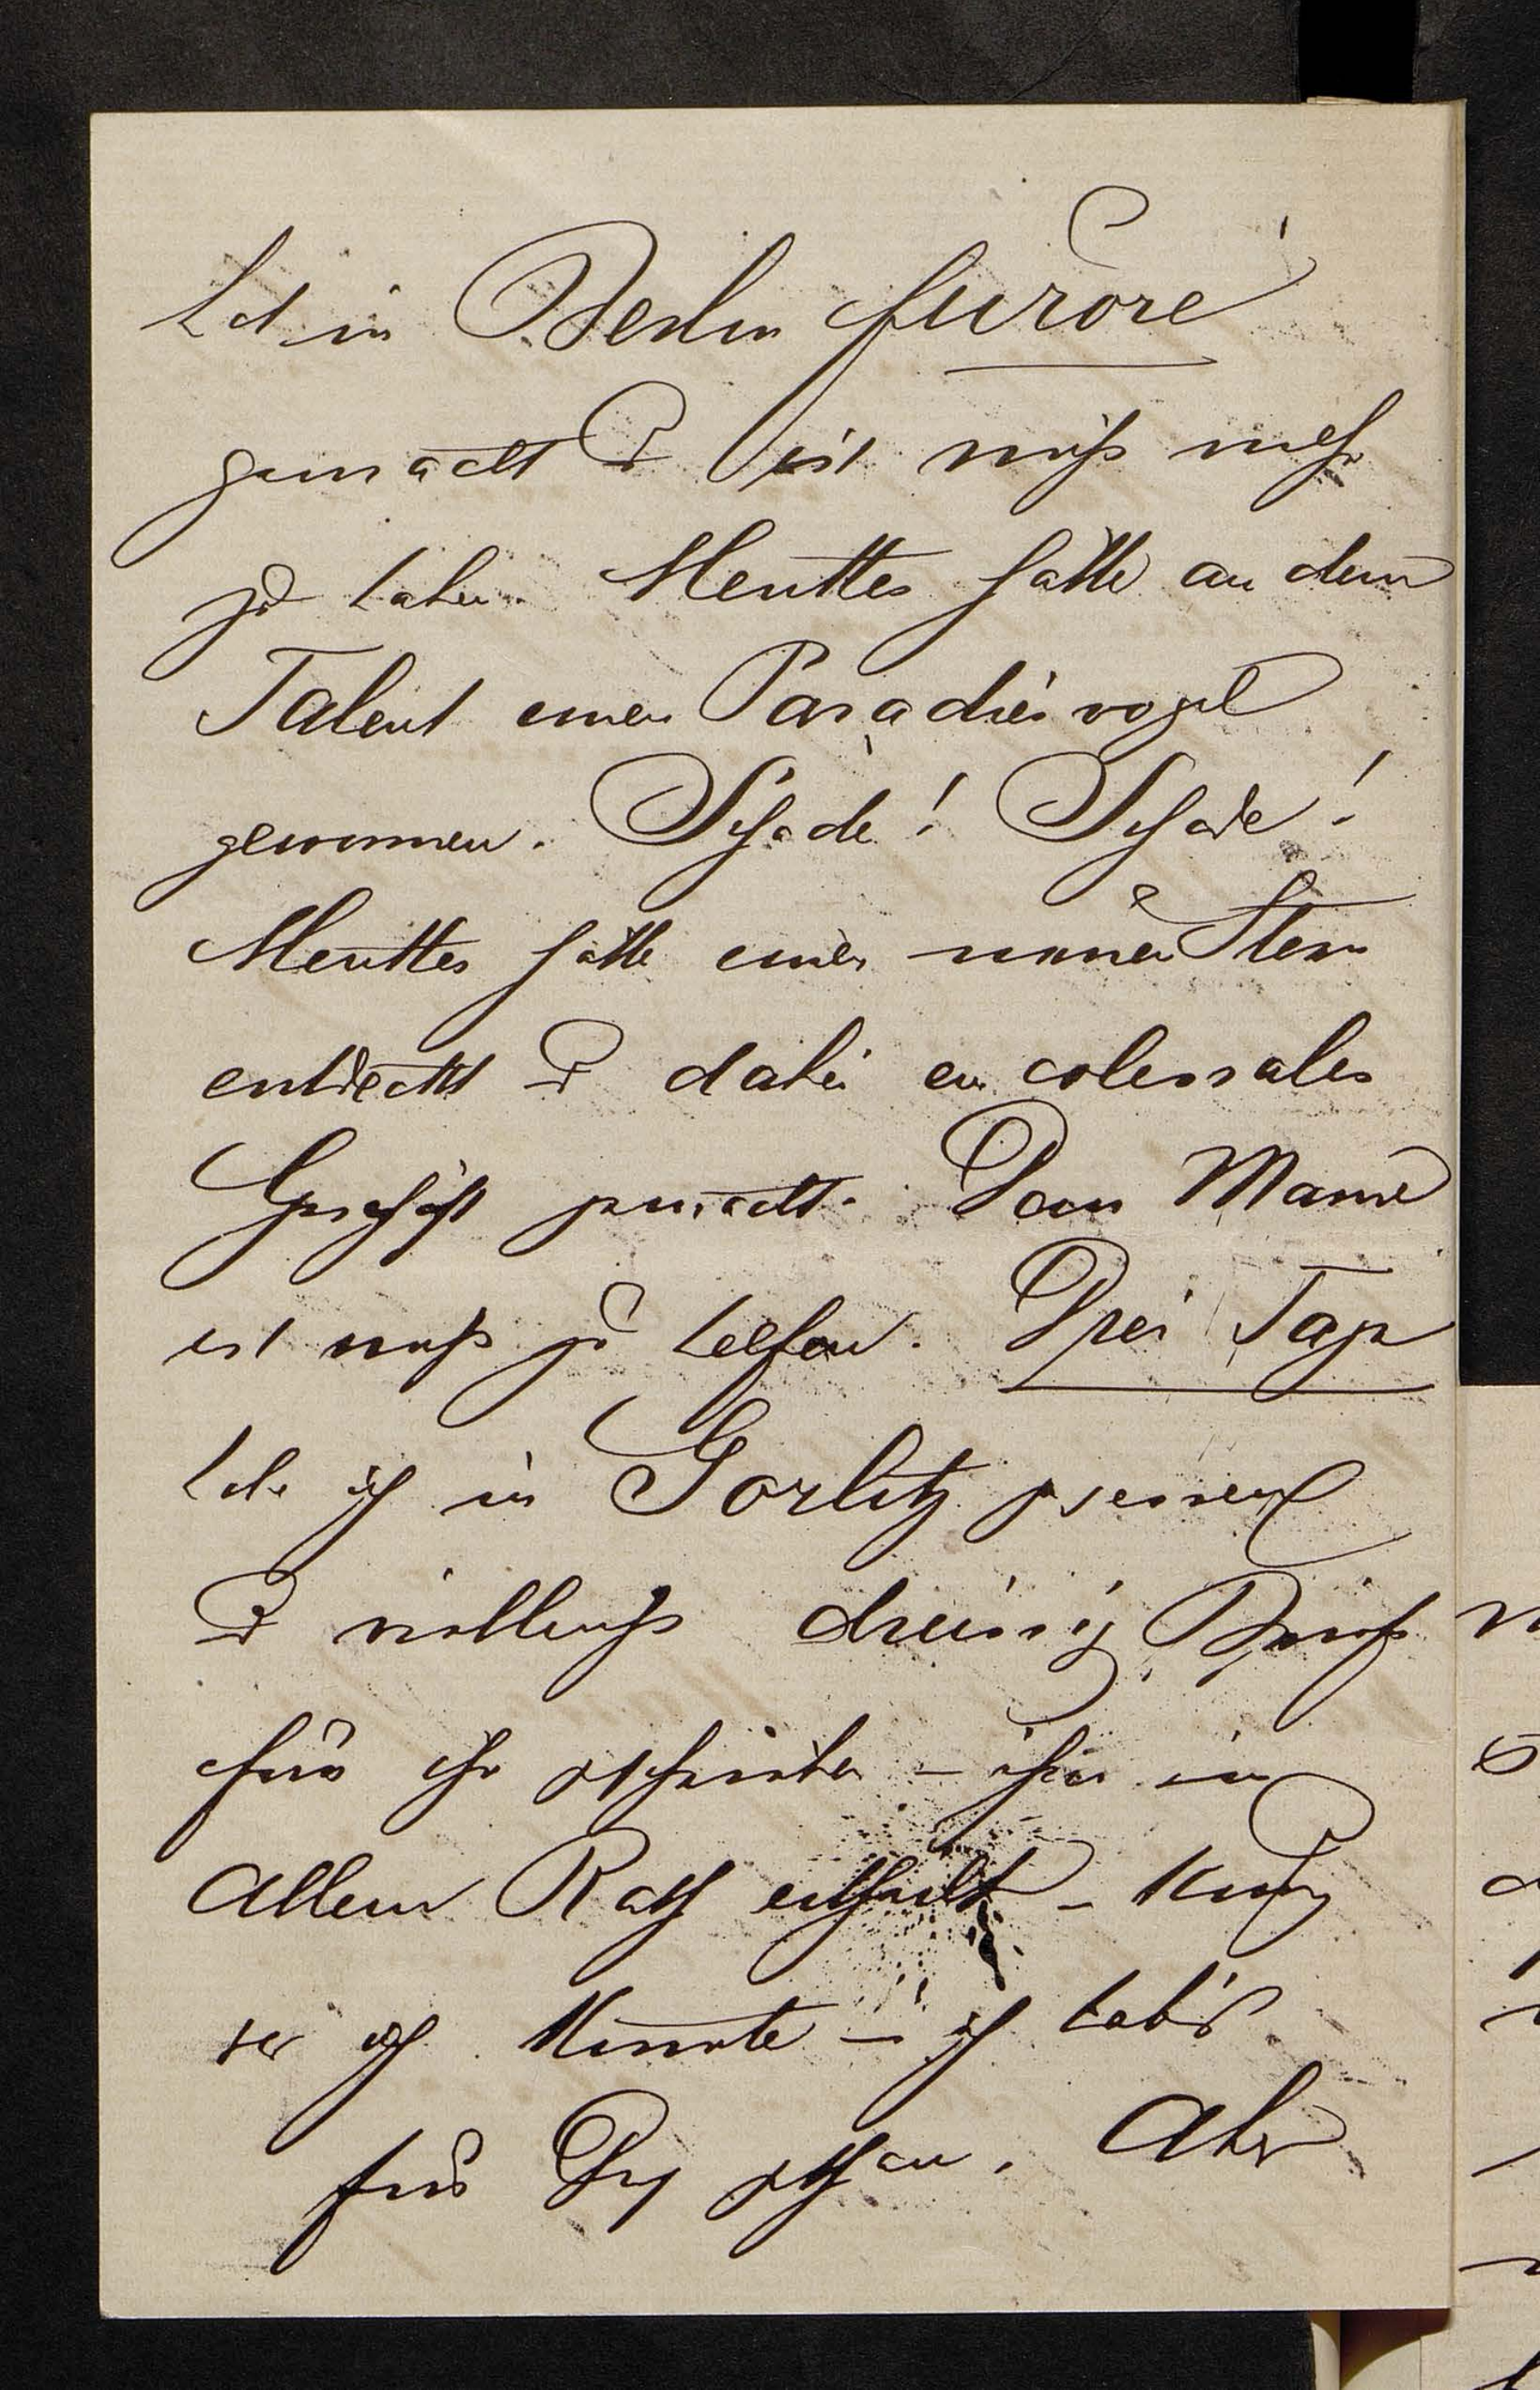 hat in Berlin furore
gemacht u ist nicht mehr
zu haben. Menttes hätte an dem
Talent einen Paradiesvogel
gewonnen. Schade! Schade!
Menttes hätte einen neuen Stern
entdeckt u dabei ein colossales
Geschäft gemacht. Dem Manne
ist nicht zu helfen. Drei Tage
habe ich in Görlitz gesessen
u vielleicht dreissig Briefe
für ihn geschrieben – ihm in
Allem Rath ertheilt – kurz
was ich konnte – ich hab's
für Dich gethan. Aber